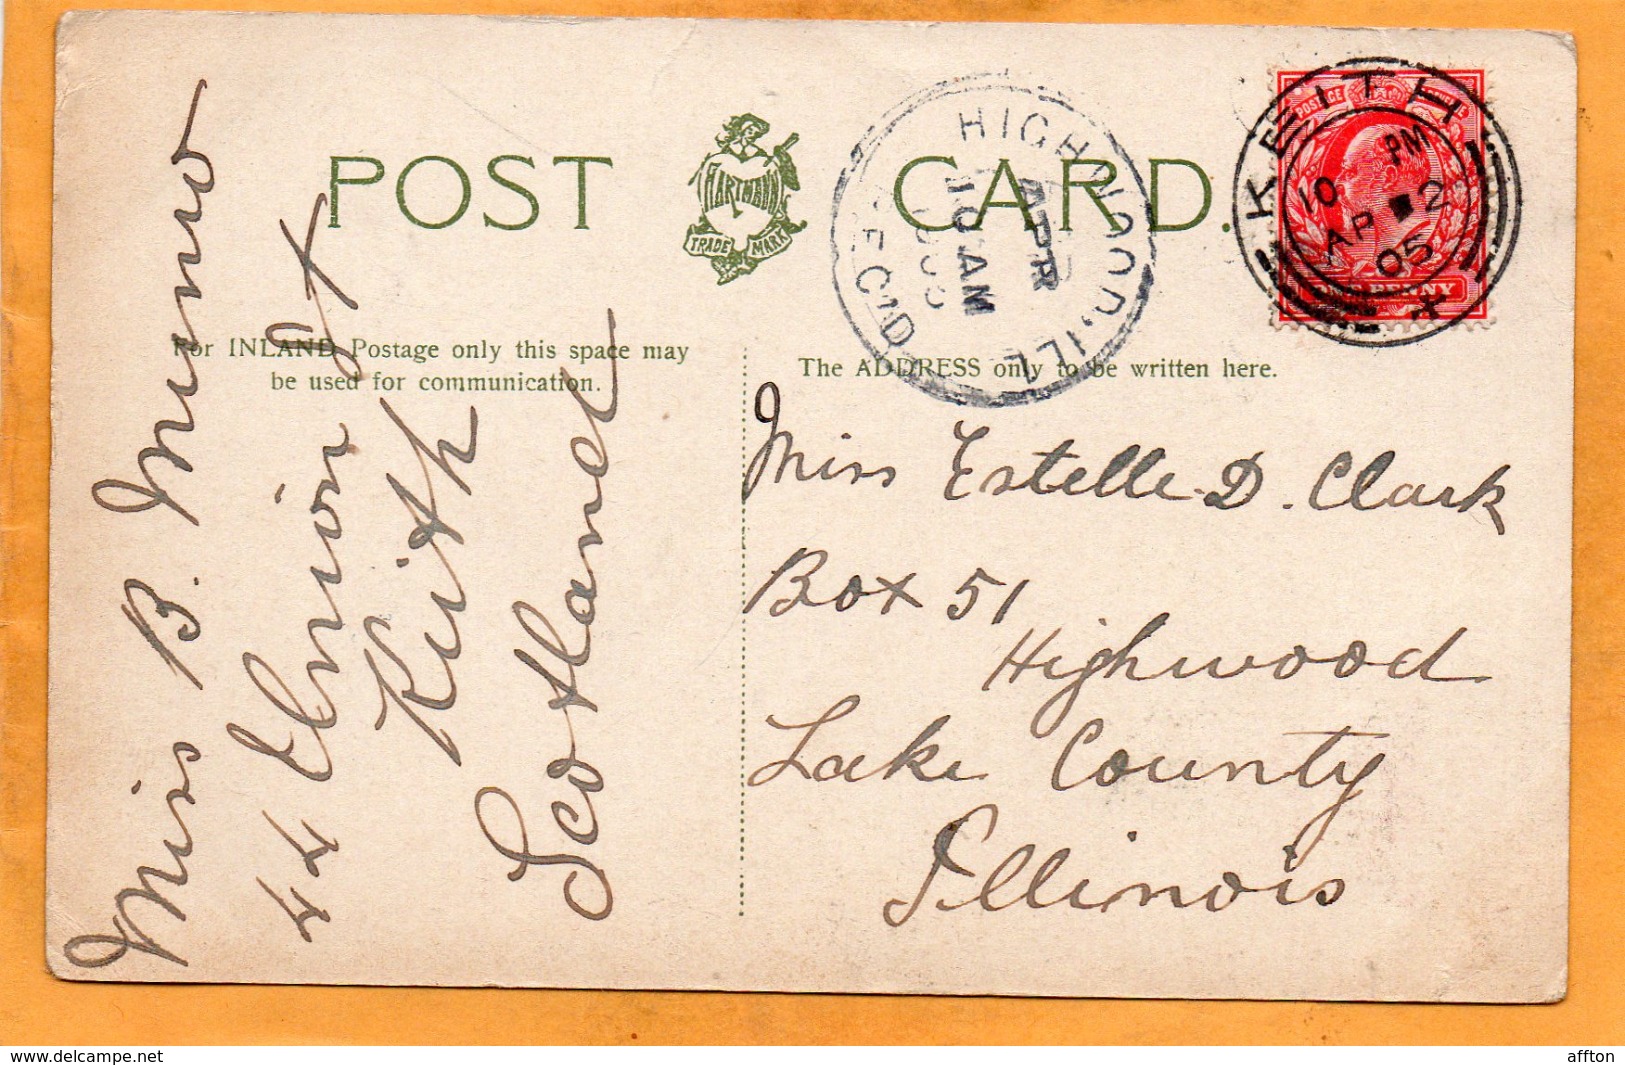 POST CARD.
HARTMANN
TRADE MARK
For INLAND Postage only this space may
be used for communication.
The ADDRESS only to be written here.
HIGHWOOD, ILL.
APR
10 AM
REC'D
KEITH
10 PM
AP 2
05
POSTAGE REVENUE
ONE PENNY
Miss B. Munro
44 Union St
Keith
Scotland
Miss Estelle D. Clark
Box 51
Highwood
Lake County
Illinois
www.delcampe.net
affton